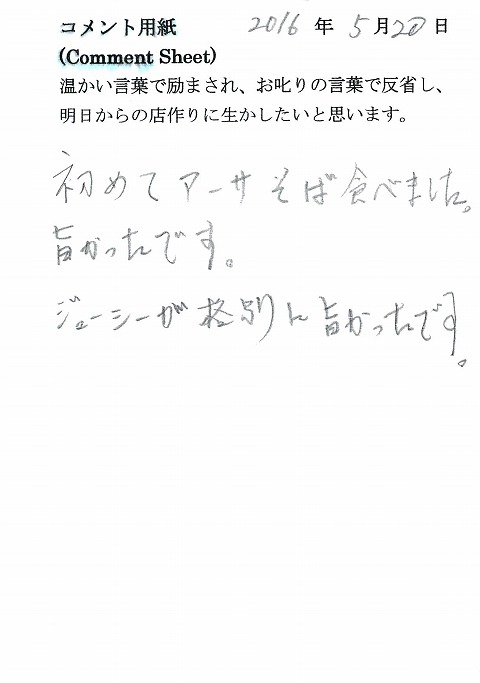 コメント用紙 2016年5月20日
(Comment Sheet)
温かい言葉で励まされ、お叱りの言葉で反省し、
明日からの店作りに生かしたいと思います。
初めてアーサそば食べました。
旨かったです。
ジューシーが格別に旨かったです。